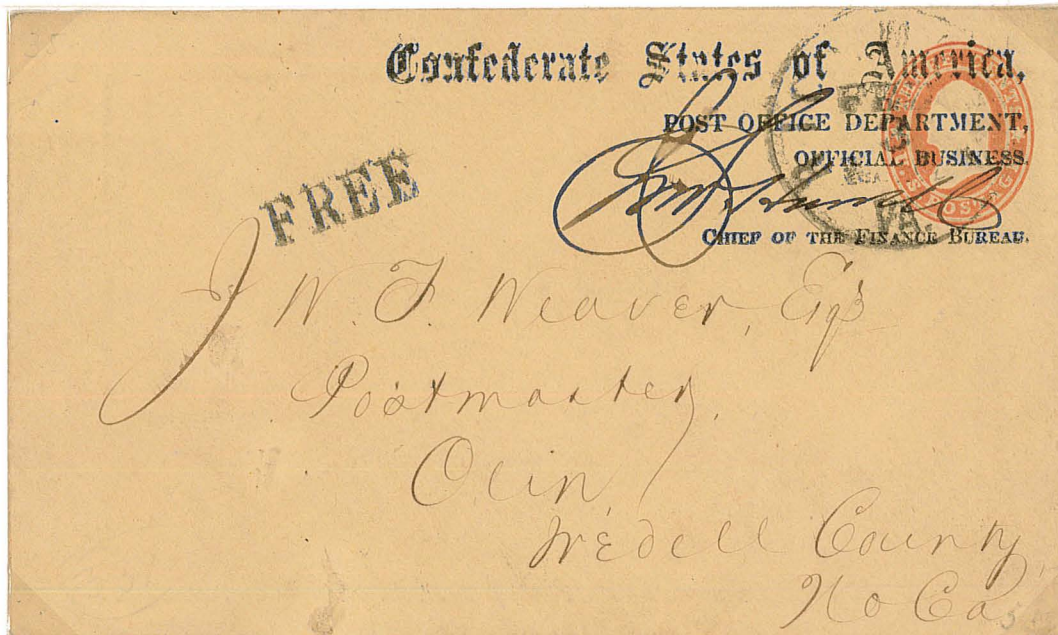 Confederate States of America,
POST OFFICE DEPARTMENT,
OFFICIAL BUSINESS.
CHIEF OF THE FINANCE BUREAU.
FREE
VA.
J W. F. Weaver, Esq
Postmaster,
Olin,
Iredell County,
No Ca